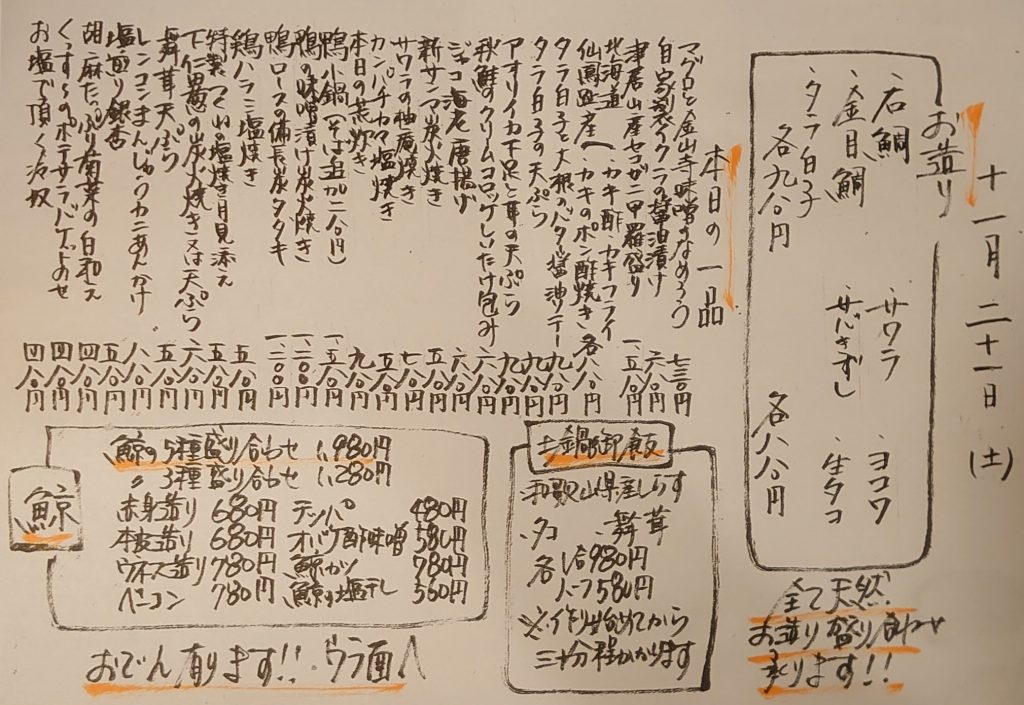 十一月二十一日(土)
お造り
・石鯛
・金目鯛
・タラ白子
各九八〇円
・サワラ
・サバきずし
・ヨコワ
・生タコ
各八八〇円
全て天然
お造り盛り合わせ
承ります!!
本日の一品
マグロと金山寺味噌のなめろう 七三〇円
自家製イクラの醤油漬け 六八〇円
津居山産セコガニ甲羅盛り 一、五八〇円
北海道
仙鳳趾産へ・カキ酢・カキフライ
・カキのポン酢焼き 各八八〇円
タラ白子と大根のバター醤油ソテー 九八〇円
タラ白子の天ぷら 九八〇円
アオリイカ下足と耳の天ぷら 九八〇円
秋鮭のクリームコロッケしいたけ包み 六八〇円
ジャコ海老唐揚げ 六八〇円
新サンマ炭火焼き 五八〇円
サワラの柚庵焼き 七八〇円
カンパチカマ塩焼き 五八〇円
本日の荒炊き 九八〇円
鴨小鍋(そば追加二八〇円) 一、五八〇円
鴨の味噌漬け炭火焼き 一、二八〇円
鴨ロースの備長炭タタキ 一、二八〇円
鶏ハラミ塩焼き 五八〇円
特製つくねの塩焼き月見添え 五八〇円
下仁田葱の炭火焼き又は天ぷら 六八〇円
舞茸天ぷら 五八〇円
レンコンまんじゅうカニあんかけ 八八〇円
塩煎り銀杏 五八〇円
胡麻たっぷり菊菜の白和え 四八〇円
くっすーのポテサラバゲットのせ 四八〇円
お塩で頂く冷奴 四八〇円
土鍋御飯
・和歌山県産しらす
・タコ ・舞茸
各1合980円
ハーフ580円
※作り始めてから
三十分程かかります
鯨
鯨の5種盛り合わせ 1,980円
〃3種盛り合わせ 1,280円
赤身造り 680円 テッパ 480円
本皮造り 680円 オバケ酢味噌 580円
ウネス造り 780円 鯨カツ 780円
ベーコン 780円 鯨の塩干し 560円
おでん有ります!!・ウラ面へ